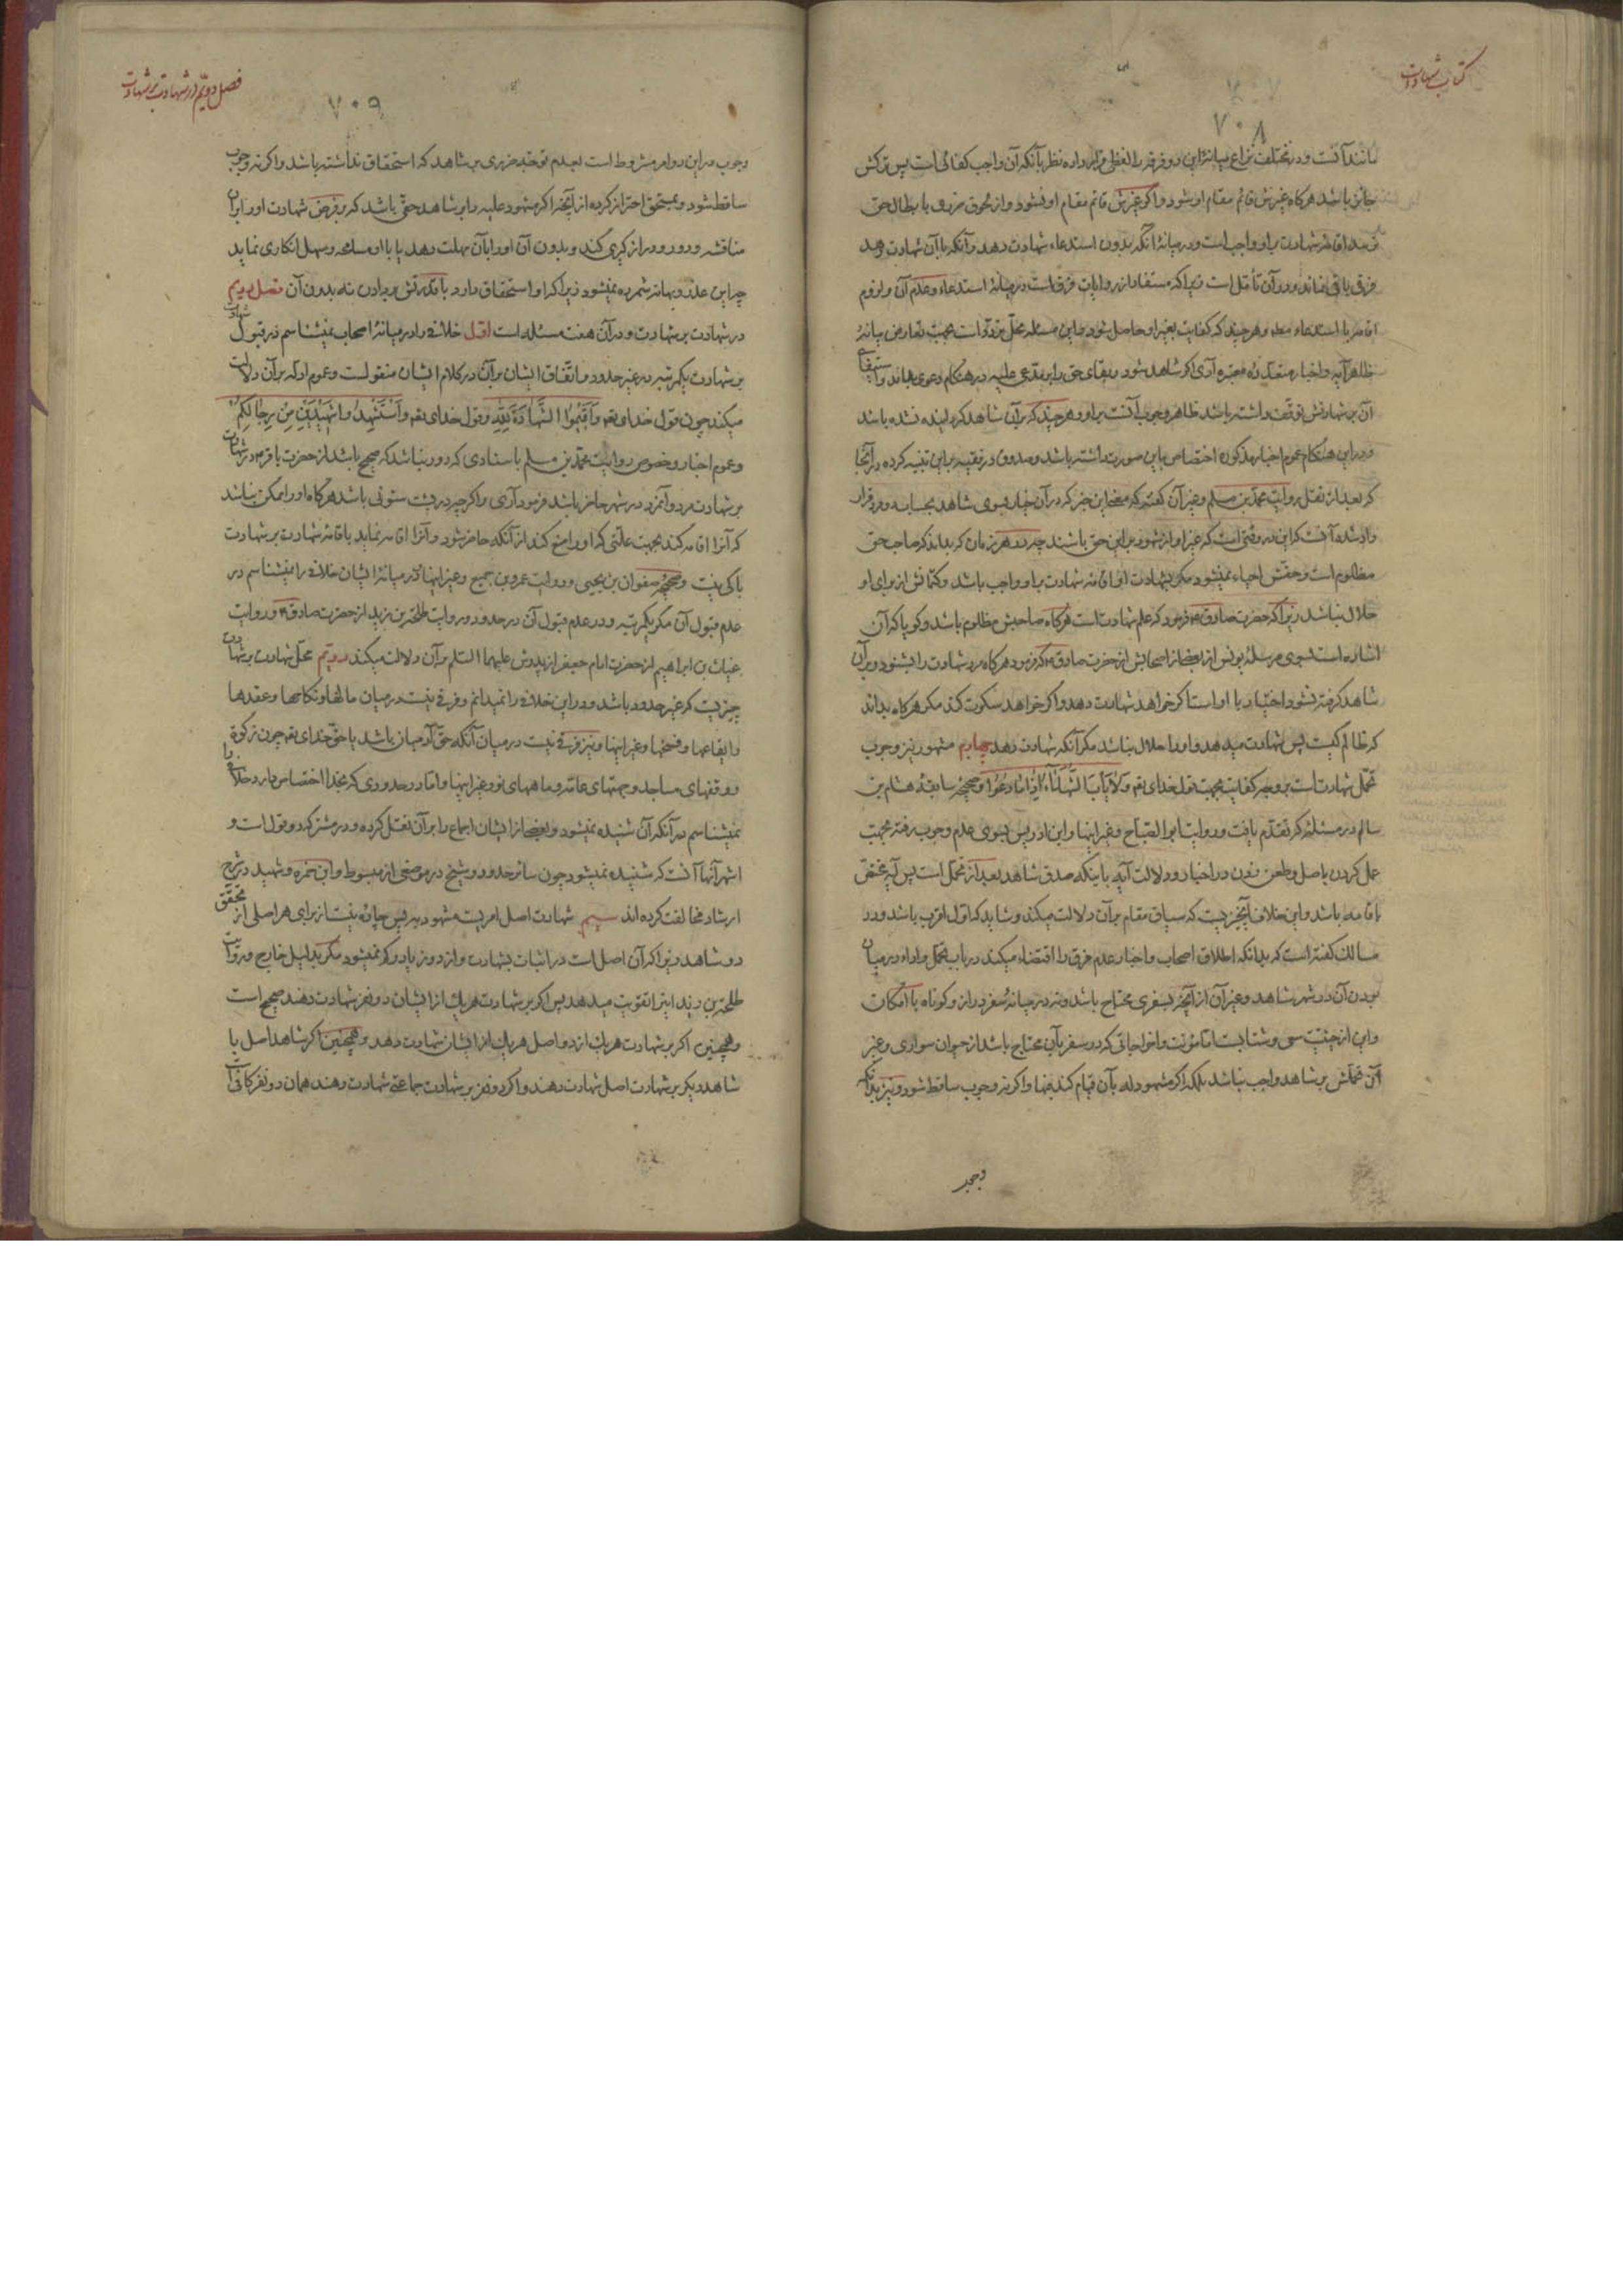 کتاب شهادت
۷۰۸
مانند آنست و در مختلف نزاع میانهٔ این دو فرقه را لفظی قرار داده نظر بآنکه آن واجب کفائی است پس ترکش
جایز باشد هرکاه غیرش قائم مقام او شود و اکر غیرش قائم مقام او نشود و از لحوق ضرر یا ابطال حق
اقامهٔ شهادت بر او واجب است و در میانهٔ آنکه بدون استدعاء شهادت دهد و آنکه با آن شهادت دهد
فرقی باقی نماند و در آن تأمّل است زیرا که مستفاد از روایات فرق است در میانهٔ استدعاء و عدم آن و لزوم
اقامه با استدعاء مطلقا و هرچند که کفایت بغیر او حاصل شود و این مسئله محلّ تردّد است بجهت تعارض میانهٔ
ظاهر آیه و اخبار متعدّدهٔ معتبره آری اکر شاهد شود و بقای حق بر مدعی علیه در هنکام دعوی بماند و استیفای
آن بر شهادتش توقّف داشته باشد ظاهر وجوب آنست بر او و هرچند که بر آن شاهد کردانیده نشده باشد
و در این هنکام عموم اخبار مذکوره اختصاص باین صورت داشته باشد و صدوق در فقیه بر این تنبیه کرده در آنجا
که بعد از نقل روایت محمّد بن مسلم و غیر آن کفته که معنی این خبر که در آن خیار بسوی شاهد بحساب مرد قرار
داده شده آنست که این در وقتی است که غیر او از شهود بر این حق باشند چه در هر زمان که بداند که صاحب حق
مظلوم است و حقّش احیاء نمیشود مکر بشهادت او اقامهٔ شهادت بر او واجب باشد و کتمانش از برای او
حلال نباشد زیرا که حضرت صادق ع فرمود که علم شهادت است هرکاه صاحبش مظلوم باشد و کویا که آن
اشاره است بسوی مرسلهٔ یونس از بعضی از اصحابش از حضرت صادق ع که فرمود هرکاه مرد شهادت را بشنود و بر آن
شاهد کرفته نشود اختیار با او است اکر خواهد شهادت دهد و اکر خواهد سکوت کند مکر هرکاه بداند
که ظالم کیست پس شهادت میدهد و او را حلال نباشد مکر آنکه شهادت دهد چهارم مشهور نیز وجوب
تحمّل شهادت است بر وجه کفایت بجهت قول خدای تعه وَلا یَأبَ الشُّهَداءُ اِذا ما دُعُوا و صحیحهٔ سابقهٔ هشام بن
سالم در مسئلهٔ که تقدّم یافت و روایت ابو الصّباح و غیر اینها و ابن ادریس بسوی عدم وجوب رفته بجهت
عمل کردن باصل و طعن نمودن در اخبار و دلالت آیه باینکه صدق شاهد بعد از تحمّل است پس آیه مختصّ
باقامه باشد و این خلاف آنچیزیست که سیاق مقام بر آن دلالت میکند و شاید که اوّل اقرب باشد و در
مسالک کفته است که بدانکه اطلاق اصحاب و اخبار عدم فرق را اقتضاء میکند در باب تحمّل و اداء در میان
بودن آن در شهر شاهد و غیر آن از آنچه بسفری محتاج باشد و نه در میانهٔ سفر دراز و کوتاه با امکان
و این از حیثیّت سعی و شتابست امّا مؤنت و اخراجاتی که در سفر بآن محتاج باشد از حیوان سواری و غیر
آن تحمّلش بر شاهد واجب نباشد بلکه اکر مشهود له بآن قیام کند فبها و اکر نه وجوب ساقط شود و نیز بدانکه
وجوب
فصل دویّم در شهادت بر شهادت
۷۰۹
وجوب در این دو امر مشروط است بعدم توجّه ضرری بر شاهد که استحقاق نداشته باشد و اکر نه وجوب
ساقط شود و بمستحق احتراز کرده از آنچه اکر مشهود علیه را بر شاهد حقّی باشد که بر فرض شهادت او را بر آن
مناقشه و دور و دراز کیری کند و بدون آن او را بآن مهلت دهد یا با او مسامحه و سهل انکاری نماید
چه این عذر و بهانه شمرده نمیشود زیرا که او استحقاق دارد با نکرفتن بر دادن نه بدون آن فصل دویم
در شهادت بر شهادت و در آن هفت مسئله است اوّل خلافی را در میانهٔ اصحاب نمیشناسم در قبول شهادت
بر شهادت یکمرتبه در غیر حدود و اتّفاق ایشان بر آن در کلام ایشان منقولست و عموم ادلّه بر آن دلالت
میکند چون قول خدای تعه وَاَقیمُوا الشَّهادَةَ لِلّهِ و قول خدای تعه وَاسْتَشْهِدُوا شَهیدَیْنِ مِنْ رِجالِکُمْ
و عموم اخبار و خصوص روایت محمّد بن مسلم باسنادی که دور نباشد که صحیح باشد از حضرت باقر ع در شهادت
بر شهادت مرد و آنمرد در شهر حاضر باشد فرمود آری و اکرچه در پشت ستونی باشد هرکاه او را ممکن نباشد
که آنرا اقامه کند بجهت علّتی که او را منع کند از آنکه حاضر شود و آنرا اقامه نماید باقامهٔ شهادت بر شهادت
باکی نیست و صحیحهٔ صفوان بن یحیی و روایت عمرو بن جمیع و غیر اینها و در میانهٔ ایشان خلافی را نمیشناسم در
عدم قبول آن مکر یکمرتبه و در عدم قبول آن در حدود و روایت طلحة بن زید از حضرت صادق ع و روایت
غیاث بن ابراهیم از حضرت امام جعفر از پدرش علیهما السّلم بر آن دلالت میکند دویّم محلّ شهادت بر شهادت
چیزیست که غیر حدود باشد و در این خلافی را نمیدانم و فرقی نیست در میان مالها و نکاحها و عقدها
و ایقاعها و فسخها و غیر اینها و نیز فرقی نیست در میان آنکه حقّ آدمیان باشد یا حقّ خدای تعه چون زکوة
و وقفهای مساجد و جهتهای عامّه و ماههای نو و غیر اینها و امّا در حدودی که بخدا اختصاص دارد خلافی را
نمیشناسم در آنکه آن شنیده نمیشود و بعضی از ایشان اجماع را بر آن نقل کرده و در مشترک دو قول است و
اشهر آنها آنست که شنیده نمیشود چون سائر حدود و شیخ در موضعی از مبسوط و ابن حمزه و شهید در شرح
ارشاد مخالفت کرده اند سیم شهادت اصل امریست مشهود به پس چاره نیست از برای هر اصلی از تحقّق
دو شاهد زیرا که آن اصل است در اثبات بشهادت و از دو زیاد و کم نمیشود مکر بدلیل خارج و روایت
طلحة بن زید اینرا تقویت میدهد پس اکر بر شهادت هر یک از ایشان دو نفر شهادت دهند صحیح است
و همچنین اکر بر شهادت هر یک از دو اصل هر یک از ایشان شهادت دهد و همچنین اکر شاهد اصل با
شاهد دیکر بر شهادت اصل شهادت دهند و اکر دو نفر بر شهادت جماعتی شهادت دهند همان دو نفر کافی است